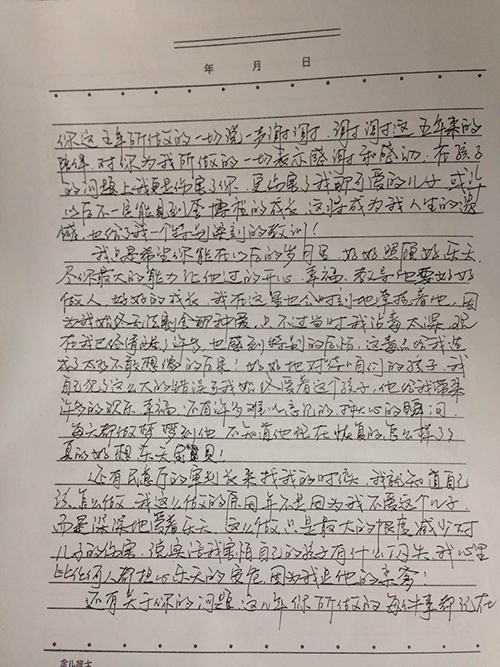 年 月 日
你这五年所做的一切说一声谢谢，谢谢这五年来的
陪伴，对你为我所做的一切表示感谢和感动，在孩子
的问题上我更是伤害了你，更伤害了我所爱的儿子，或许
以后不一定能见到 的成长，这将成为我人生的遗
憾，也给了我一个特别深刻的教训！
我只是希望你能在以后的岁月里，好好照顾好乐天，
尽你最大的能力让他过的开心、幸福，教导他要好好
做人，好好的成长，我在这里也会时刻地牵挂着他，因
为我始终无法割舍那种爱，只不过当时我治毒太深，现
在我已经清醒了许多，也感到特别的后怕，这毒品给我造
成了太多不敢想像的后果！好好地对待咱们的孩子，我
自己犯了这么大的错误，我始终爱着这个孩子，他给我带来
许多的欢乐、幸福，还有许多难以忘记的、开心的瞬间，
每天都做梦梦到他，不知道他现在恢复的怎么样了，
真的好想乐天宝贝！
还有民意厅的 长来找我的时候，我就知道自己
该怎么做，我这么做的原因并不是因为我不要这个儿子，
而是深深地爱着乐天，这么做只是最大的限度减少对
儿子的伤害，说实话我害怕自己的孩子有什么闪失，我心里
比任何人都担心乐天的安危，因为我是他的亲爹！
还有关于你的问题，这几年你所做的每件事都记在